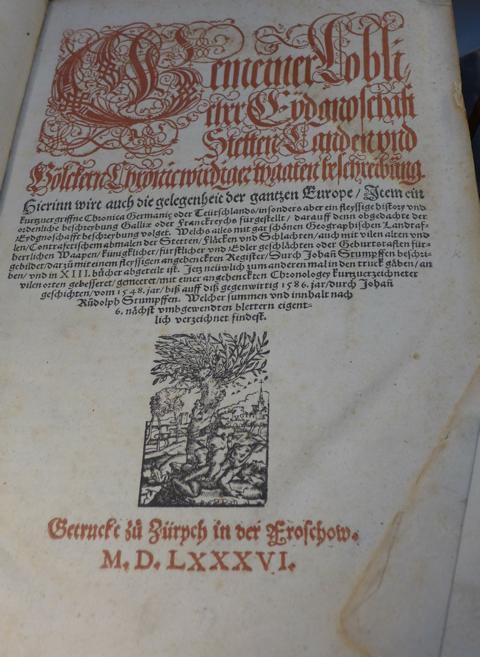 Gemeiner Lobli⸗
cher Eydgnoschafft
Stetten Landen vnd
Völckern Chronicwirdiger thaaten beschreibung.
Hierinn wirt auch die gelegenheit der gantzen Europe / Item ein
kurtzuergriffne Chronica Germanie oder Teütschlands / insonders aber ein fleyssige history vnd
ordenliche beschreybung Gallie oder Franckreychs fürgestellt / darauff denn obgedachte der
Eydgnoschafft beschreybung volget. Welchs alles mit gar schönen Geographischen Landtaf⸗
len / Contrafetischem abmalen der Stetten / Fläcken vnd Schlachten / auch mit vilen alten vnd
herrlichen Waapen / künigklicher / fürstlicher vnd Edler geschlächten oder Geburtstaflen für⸗
gebildet / darzů mit einem fleyssigen angehenckten Register / Durch Johañ Stumpffen beschri⸗
ben / vnd in XIII. bücher abgeteilt ist. Jetz neüwlich zum anderen mal in den truck gäben / an
vilen orten gebesseret / gemeeret / mit einer angehenckten Chronologey kurtzuerzeichneter
geschichten / vom 1548. jar / biß auff diß gegenwirtig 1586. jar / durch Johañ
Růdolph Stumpffen. Welcher summen vnd innhalt nach
6. nächst vmbgewendten blettern eigent⸗
lich verzeichnet findest.
Getruckt zů Zürych in der Froschow.
M. D. LXXXVI.